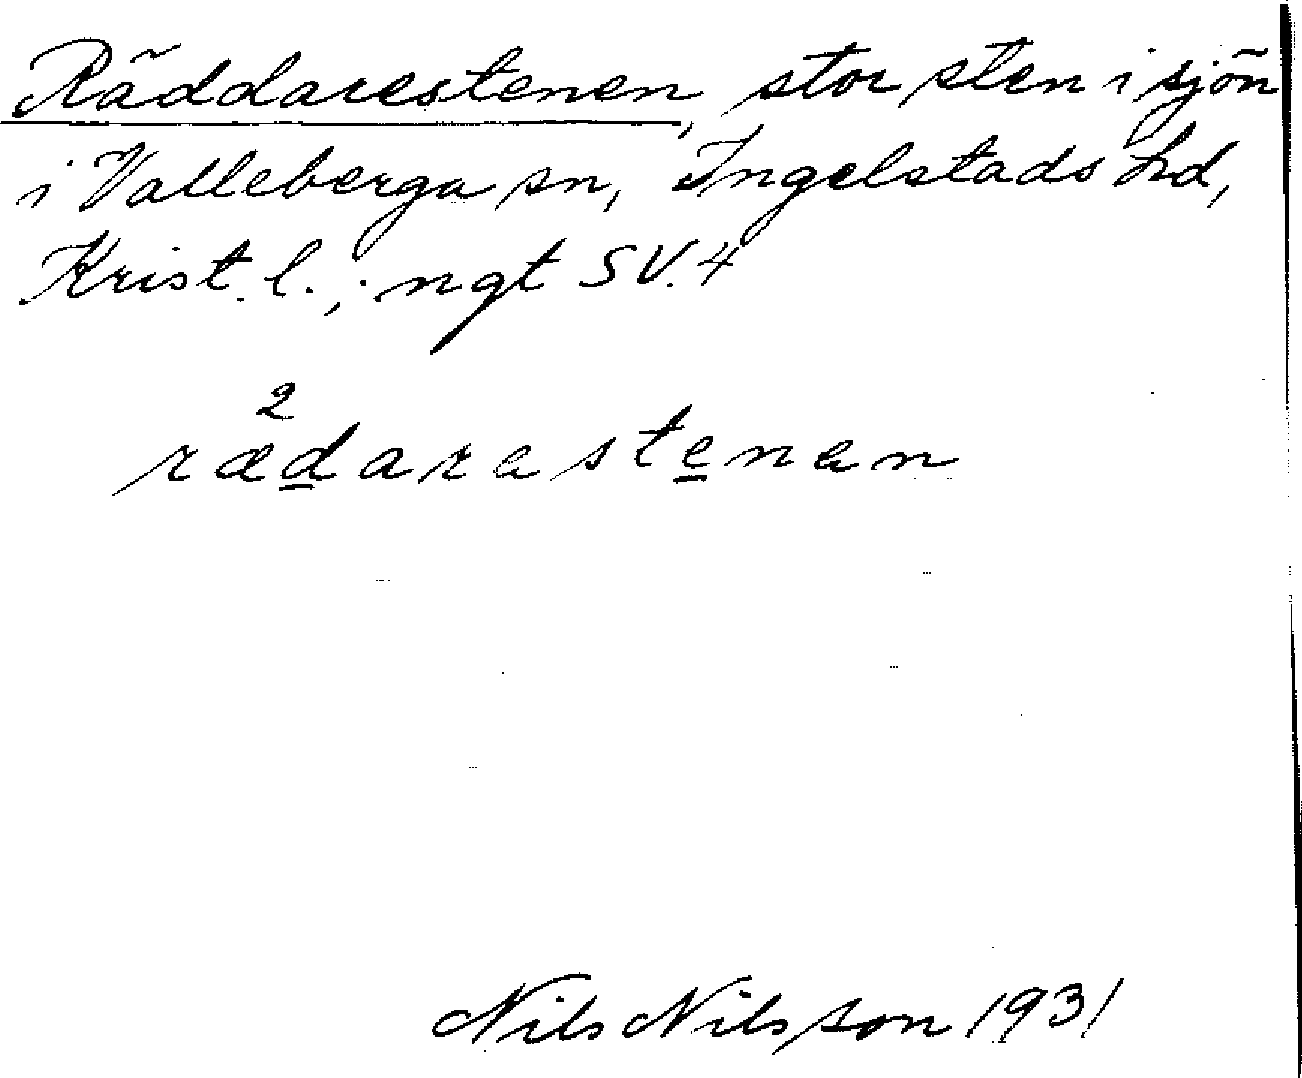 Räddarestenen, stor sten i sjön
i Valleberga sn, Ingelstads hd,
Krist. l.; ngt SV. 4
2
rædarastenan
Nils Nilsson 1931